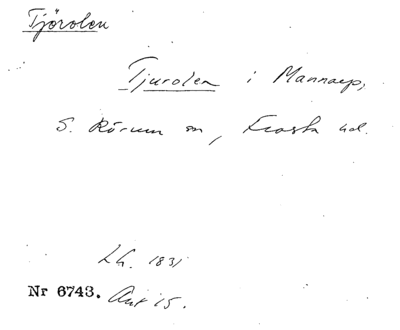 Tjörolen
Tjurolen i Mannarp,
S. Rörum sn, Frosta hd.
LH. 1831
Nr 6743. Akt 15.